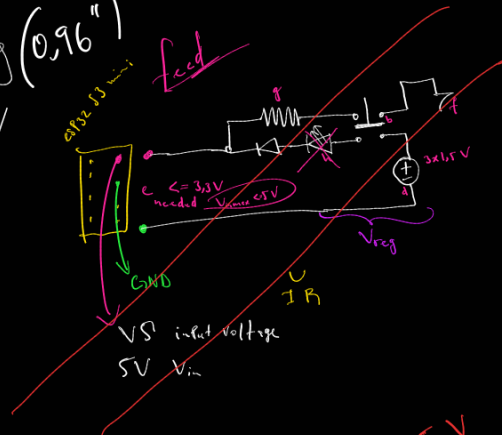 (0,96"
feed
ESP32 S3 mini
g
b
f
3x1,5V
d
e <= 3,3V
needed
5V
Vreg
GND
IR
VS input voltage
5V Vin
V